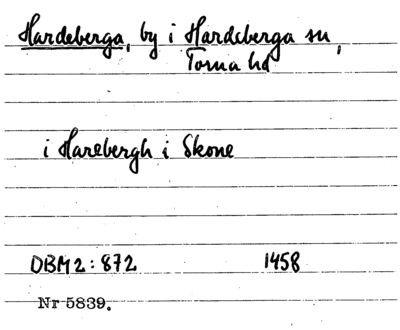 Hardeberga, by i Hardeberga sn,
Torna hd
i Harebergh i Skone
DBM 2: 872 1458
Nr 5839.